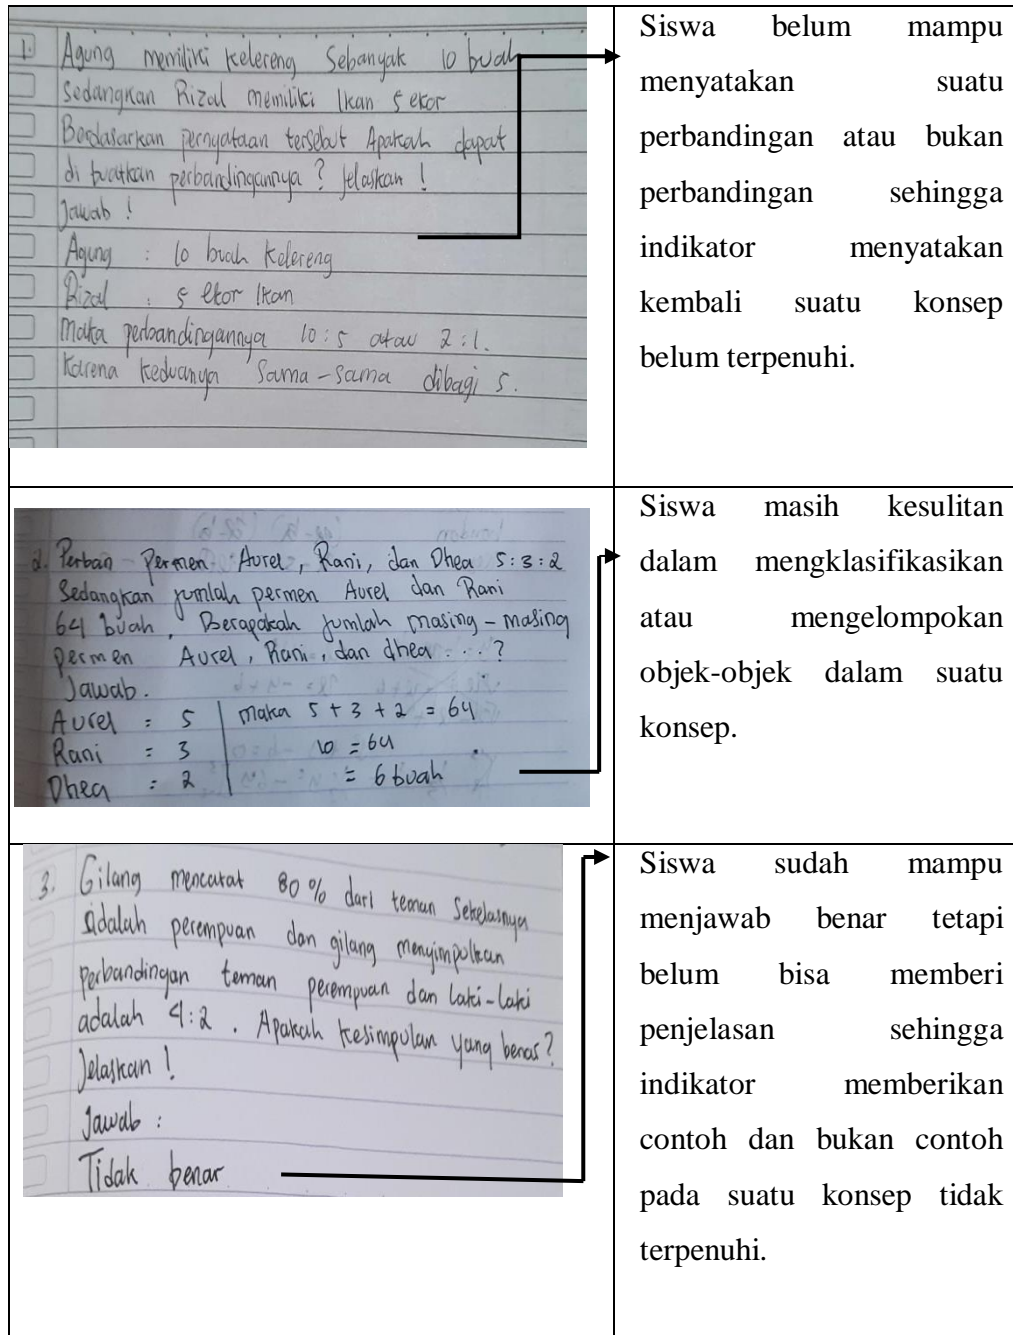 1. Agung memiliki kelereng Sebanyak 10 buah
Sedangkan Rizal memiliki Ikan 5 ekor
Berdasarkan pernyataan tersebut Apakah dapat
di buatkan perbandingannya ? Jelaskan !
Jawab !
Agung : 10 buah Kelereng
Rizal : 5 ekor Ikan
Maka perbandingannya 10 : 5 atau 2 : 1.
Karena keduanya Sama - sama dibagi 5.
Siswa belum mampu
menyatakan suatu
perbandingan atau bukan
perbandingan sehingga
indikator menyatakan
kembali suatu konsep
belum terpenuhi.
2. Perban - Permen Aurel, Rani, dan Dhea 5 : 3 : 2
Sedangkan jumlah permen Aurel dan Rani
64 buah, Berapakah jumlah masing - masing
permen Aurel, Rani, dan dhea . . . ?
Jawab.
Aurel = 5 | maka 5 + 3 + 2 = 64
Rani = 3 | 10 = 64
Dhea = 2 | = 6 buah
Siswa masih kesulitan
dalam mengklasifikasikan
atau mengelompokan
objek-objek dalam suatu
konsep.
3. Gilang mencatat 80 % dari teman Sekelasnya
adalah perempuan dan gilang menyimpulkan
perbandingan teman perempuan dan laki-laki
adalah 4 : 2 . Apakah kesimpulan yang benar ?
Jelaskan !
Jawab :
Tidak benar
Siswa sudah mampu
menjawab benar tetapi
belum bisa memberi
penjelasan sehingga
indikator memberikan
contoh dan bukan contoh
pada suatu konsep tidak
terpenuhi.